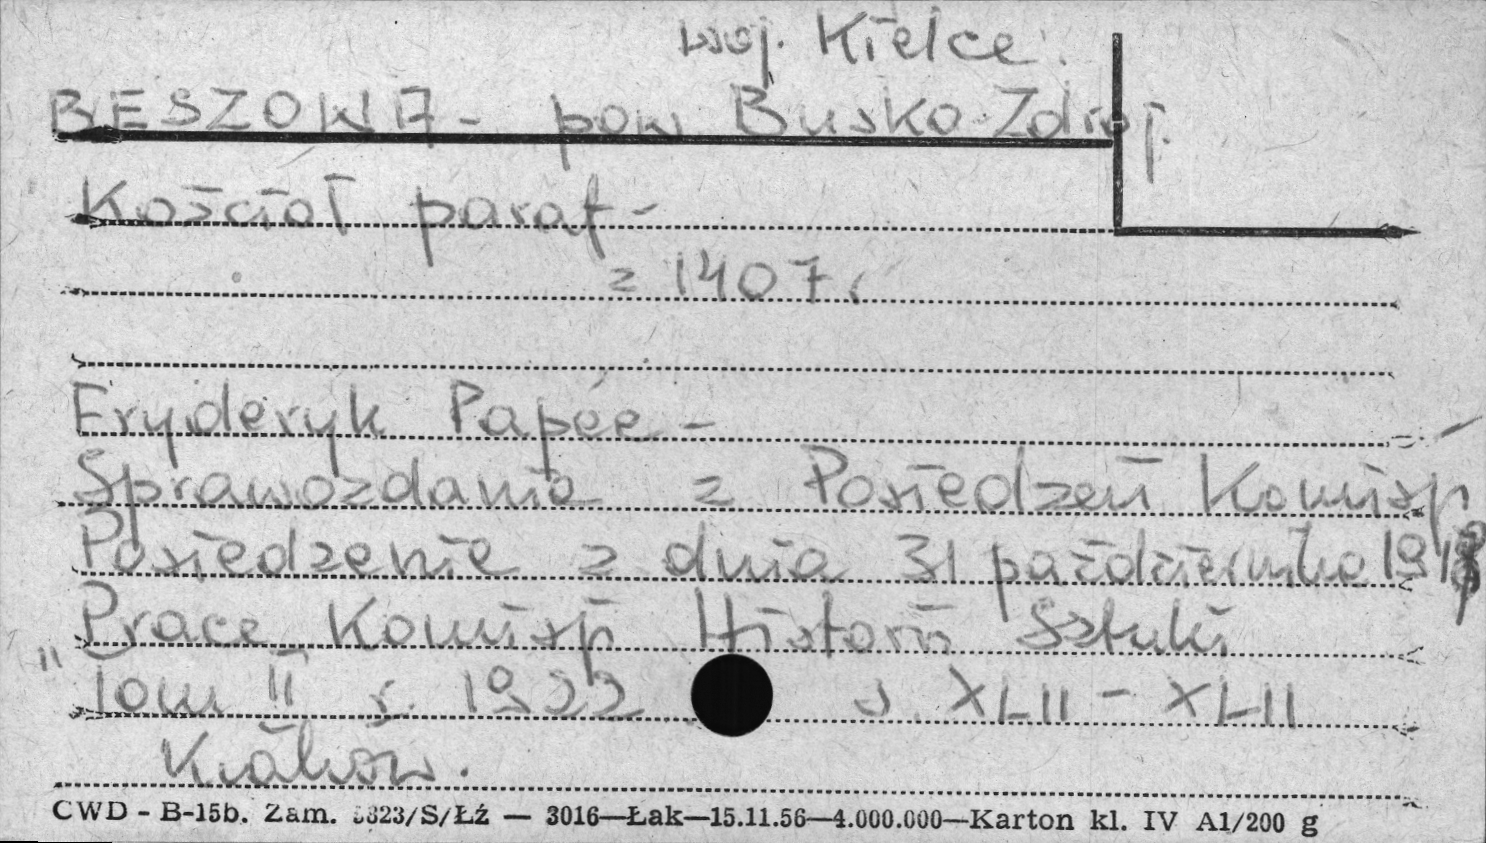 woj. Kielce.
BESZOWA - pow Busko-Zdrój.
Kościół paraf -
z 1407 r
Fryderyk Papée -
Sprawozdania z Posiedzeń Komisji
Posiedzenie z dnia 31 października 1918
Prace Komisji Historii Sztuki
" Tom II r. 1922 s. XLII - XLII
Kraków.
CWD - B-15b. Zam. 5323/S/Łź — 3016—Łak—15.11.56—4.000.000—Karton kl. IV A1/200 g